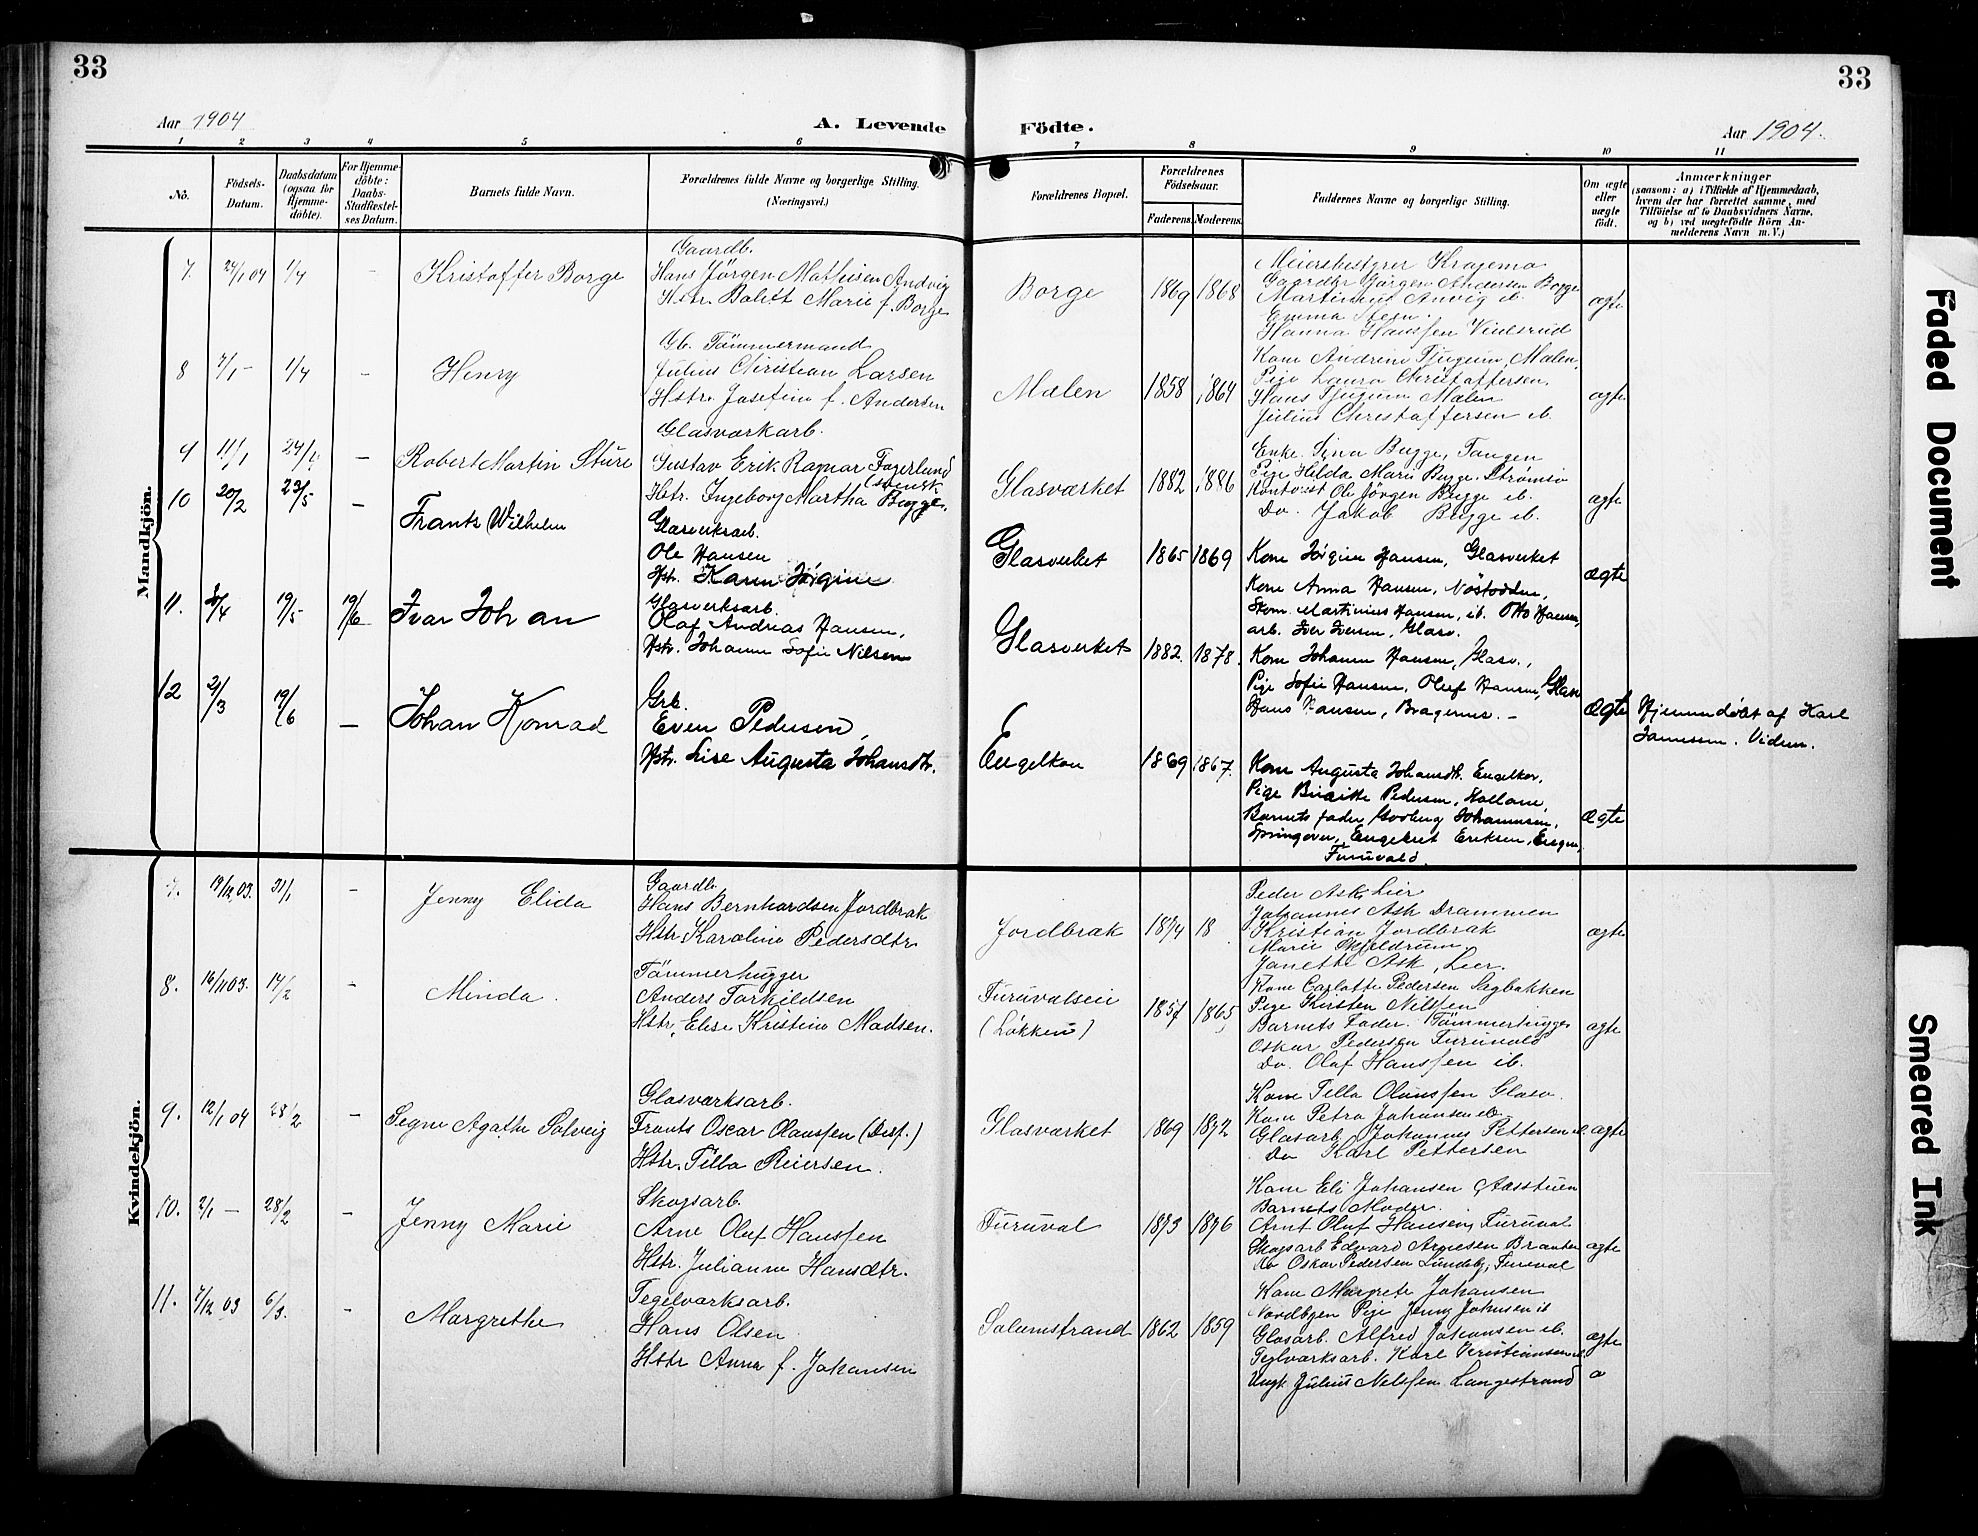 33
33
Aar 1904
A. Levende
Födte.
Aar 1904.
1 2 3 4 5 6 7 8 9 10 11
No.
Födsels-
Datum.
Daabsdatum
(ogsaa for
Hjemme-
döbte).
For Hjemme-
döbte:
Daabs-
Stadfæstel-
ses Datum.
Barnets fulde Navn.
Forældrenes fulde Navne og borgerlige Stilling.
(Næringsvei.)
Forældrenes Bopæl.
Forældrenes
Födselsaar.
Faderens.
Moderens.
Faddernes Navne og borgerlige Stilling.
Om ægte
eller
uægte
födt.
Anmærkninger
(saasom: a) i Tilfælde af Hjemmedaab,
hvem der har forrettet samme, med
Tilföielse af to Daabsvidners Navne,
og b) ved uægtefödte Börn An-
melderens Navn m. V.)
Mandkjön.
7. 24/1 04 1/4 - Kristoffer Borge
Gaardb.
Hans Jörgen Mathisen Andvig
Hstr. Bolett Marie f. Borge
Borge 1869 1868
Meieribestyrer
Gaardbr Jörgen Andersen Borge
Martinius Anvig ib.
Emma Steen.
Hanna Hanssen
ægte
8 7/1 - 1/4 - Henry
Gb. Tömmermand
Julius Christian Larsen
Hstr. Josefine f. Andersen
Mælen 1858 1864
Kone Andrine Tjugum, Mælen,
Pige Laura Christoffersen,
Hans Tjugum Mælen
Julius Christoffersen ib.
ægte
9 11/1 24/4 - Robert Martin Sture
Glasværkarb.
Gustav Erik Ragnar Fagerlund
(svensk
Hstr. Ingeborg Martha Bugge.
Glasværket 1882 1886
Enke. Sina Bugge, Tangen
Pige Hilda Marie Bugge. Strömsö
Kontorist Ole Jörgen Bugge ib.
Do. Jakob Bugge ib.
ægte
10 20/2 23/5 - Frantz Wilhelm
Glasverksarb.
Ole Hansen
Hstr. Karen Jörgine
Glasverket 1865 1869
Kone Jörgine Hansen, Glasverket
Kone Anna Hansen, Nöstodden,
Martinius Hansen, ib. Otto Hansen,
arb. Iver Iversen, Glasv.
ægte
11. /4 19/5 19/6 Ivar Johan
Glasverksarb.
Olaf Andreas Hansen,
Hstr. Johanne Sofie Nilsen
Glasverket 1882. 1878.
Kone Johanne Hansen, Glasv.,
Pige Sofie Hansen, Oluf Hansen, Glasv
Hans Hansen, Bragernes. -
ægte
Hjemmedöbt af Karl
12 2/3 19/6 - Johan Konrad
Grb.
Even Pedersen,
Hstr. Lise Augusta Johansdtr.
Engelkou 1869 1867.
Kone Augusta Johansdtr. Engelkor,
Pige Birgitte Pedersen,
Barnets fader Johannesen,
Springeren, Engebret Eriksen,
Furuvald.
ægte
Kvindekjön.
7. 19/12 03. 31/1 - Jenny Elida
Gaardb.
Hans Bernhardsen Jordbræk
Hstr. Karoline Pedersdtr
Jordbræk 1874 18
Peder Ask Lier
Johannes Ask Drammen
Kristian Jordbræk
Marie Skjeldrum
Janette Ask, Lier.
ægte
8. 16/11 03. 14/2 - Minda.
Tömmerhugger
Anders Torkildsen
Hstr. Elise Kristine Madsen.
Furuvalseie
(Løkken) 1857 1865
Kone Carlotte Pedersen Sagbakken
Pige Kirsten Nilssen
Barnets Fader. Tömmerhugger
Oskar Pedersen Furuvald
Do. Olaf Hanssen ib.
ægte
9. 12/1 04 28/2 - Signe Agathe Solveig
Glasværksarb.
Frants Oscar Olaussen (Diss.)
Hstr. Tilla Reiersen.
Glasværket 1869 1872
Kone Tilla Olaussen Glasv.
Kone Petra Johansen ib.
Glasarb. Johannes Pettersen ib
Do Karl Pettersen
ægte
10. 2/1 - 28/2 - Jenny Marie
Skogsarb.
Arne Oluf Hanssen
Hstr. Julianne Hansdtr.
Furuval 1873 1876
Kone Eli Johansen Aasstuen
Barnets Moder.
Arnt Oluf Hansen, Furuval
Skogsarb Edvard Arnesen
Do Oskar Pedersen Lundeby, Furuval
ægte
11. 7/12 03 6/3. - Margrethe
Tegelværksarb.
Hans Olsen
Hstr Anna f. Johansen
Solumstrand 1862 1859
Kone Margrete Johansen
Nordbyen Pige Jenny Johnsen ib
Glasarb. Alfred Johansen ib.
Teglværksarb. Karl Kristiansen ib
Ungk Julius Nilssen Langestrand
ægte
Faded Document
Smeared Ink